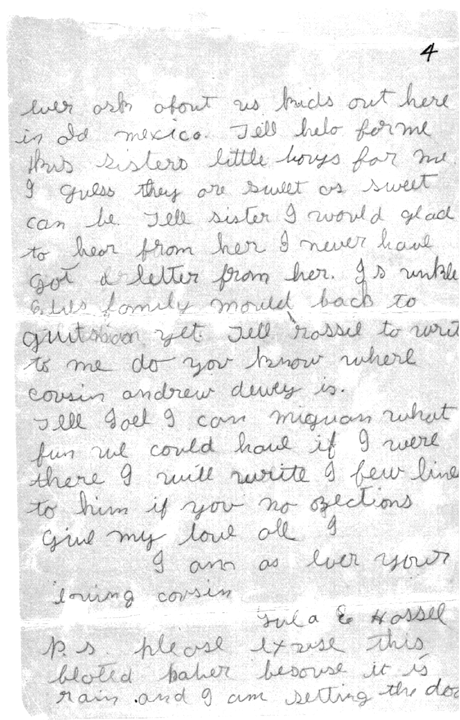 4
ever ask about us kids out here
in old mexico. Tell helo for me
kiss sisters little boys for me.
I guess they are sweet as sweet
can be. Tell sister I would glad
to hear from her I never have
got a letter from her. Is unkle
family moved back to
yet. Tell rassel to writ
to me do you know where
cousin andrew dewey is.
Tell Joel I can miguan what
fun we could have if I were
there I will write I few line
to him if you no ojections
Give my love all I
I am as ever your
loving cousin
Lula E Hassel
P.s. please exuse this
bloted paper becouse it is
rain and I am setting the doo